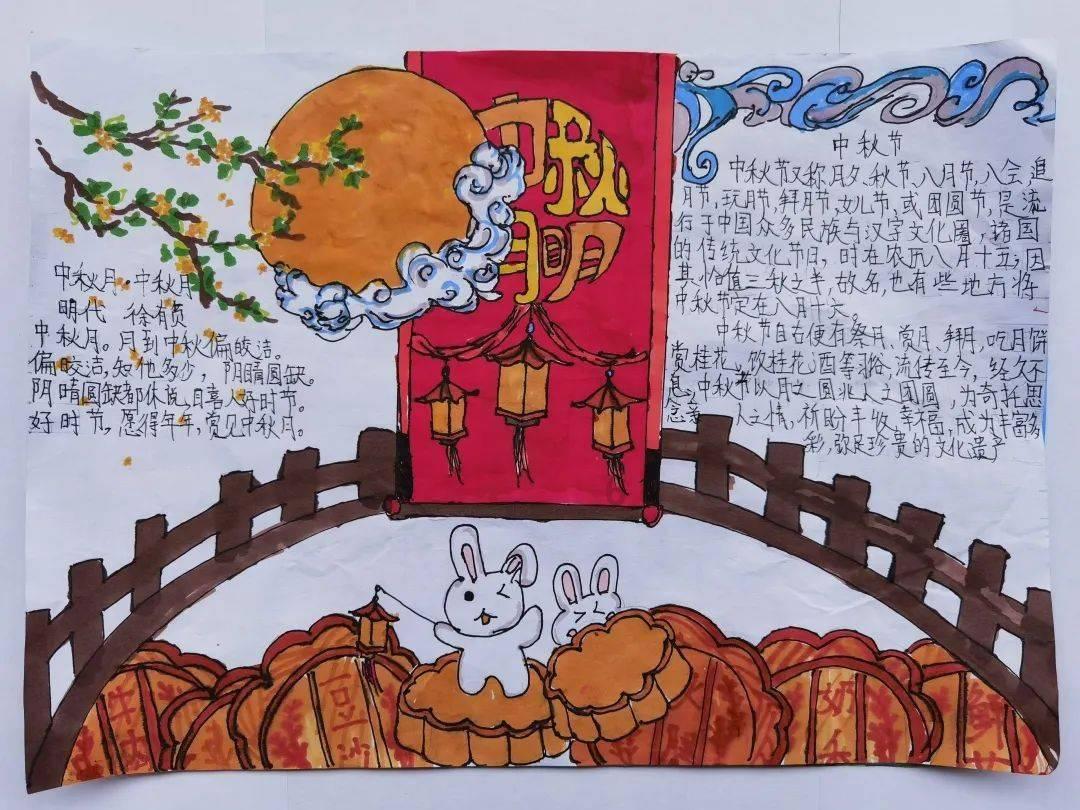 中秋
月明
中秋月·中秋月
明代 徐有贞
中秋月。月到中秋偏皎洁。
偏皎洁,知他多少,阴晴圆缺。
阴晴圆缺都休说,且喜人好时节。
好时节,愿得年年,常见中秋月。
中秋节
中秋节又称月夕、秋节、八月节、八会,追
月节,玩月节,拜月节,女儿节,或团圆节,是流
行于中国众多民族与汉字文化圈,诸国
的传统文化节日,时在农历八月十五;因
其恰值三秋之半,故名,也有些地方将
中秋节定在八月十六。
中秋节自古便有祭月、赏月、拜月、吃月饼
赏桂花、饮桂花酒等习俗,流传至今,经久不
息,中秋节以月之圆兆人之团圆,为寄托思
念 人之情,祈盼丰收、幸福,成为丰富多
彩,弥足珍贵的文化遗产
牛肉
豆沙
奶香
鲜